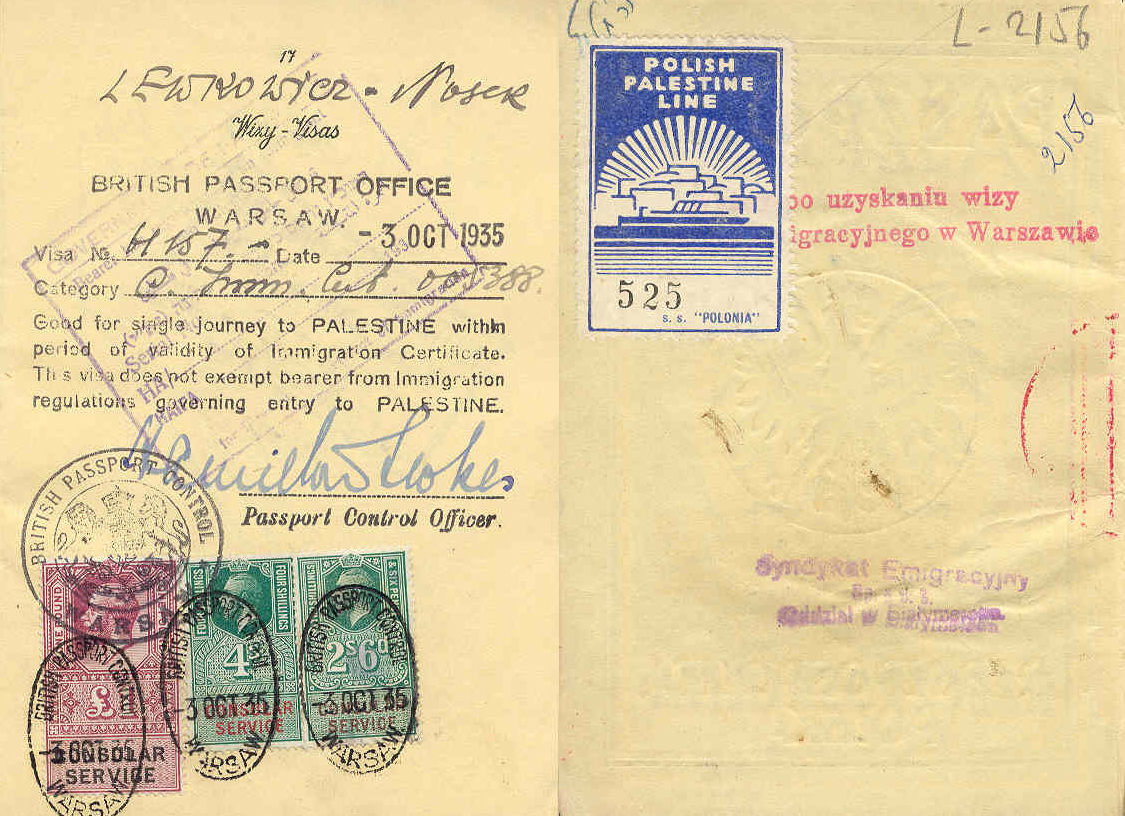 17
LEWKOWICZ - Nosek
Wizy-Visas
BRITISH PASSPORT OFFICE
WARSAW.
Visa №. 61157. - Date - 3 OCT 1935
Category Imm.
Good for single journey to PALESTINE within
period of validity of Immigration Certificate.
This visa does not exempt bearer from Immigration
regulations governing entry to PALESTINE.
Passport Control Officer.
BRITISH PASSPORT CONTROL
WARSAW
ONE POUND
£1
CONSOLAR
SERVICE
BRITISH PASSPORT CONTROL
-3 OCT 35
WARSAW
FOUR SHILLINGS
4S
CONSULAR
SERVICE
BRITISH PASSPORT CONTROL
-3 OCT 35
WARSAW
2S 6D
SERVICE
BRITISH PASSPORT CONTROL
-3 OCT 35
WARSAW
HAIFA
L-2156
2156
POLISH
PALESTINE
LINE
525
S. S. "POLONIA"
po uzyskaniu wizy
igracyjnego w Warszawie
Syndykat Emigracyjny
Oddział w Białymstoku